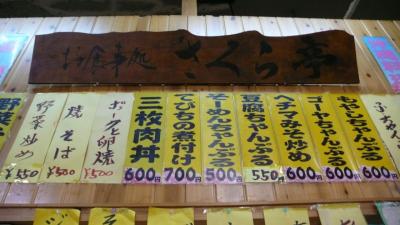 お食事処 さくら亭
もやしちゃんぷるー 600円
ゴーヤーちゃんぷるー 600円
ヘチマみそ炒め 600円
豆腐ちゃんぷるー 550円
そーめんちゃんぷるー 500円
てびちの煮付け 700円
三枚肉丼 600円
ポークと卵焼 ¥500
焼そば ¥500
野菜炒め ¥550
野菜